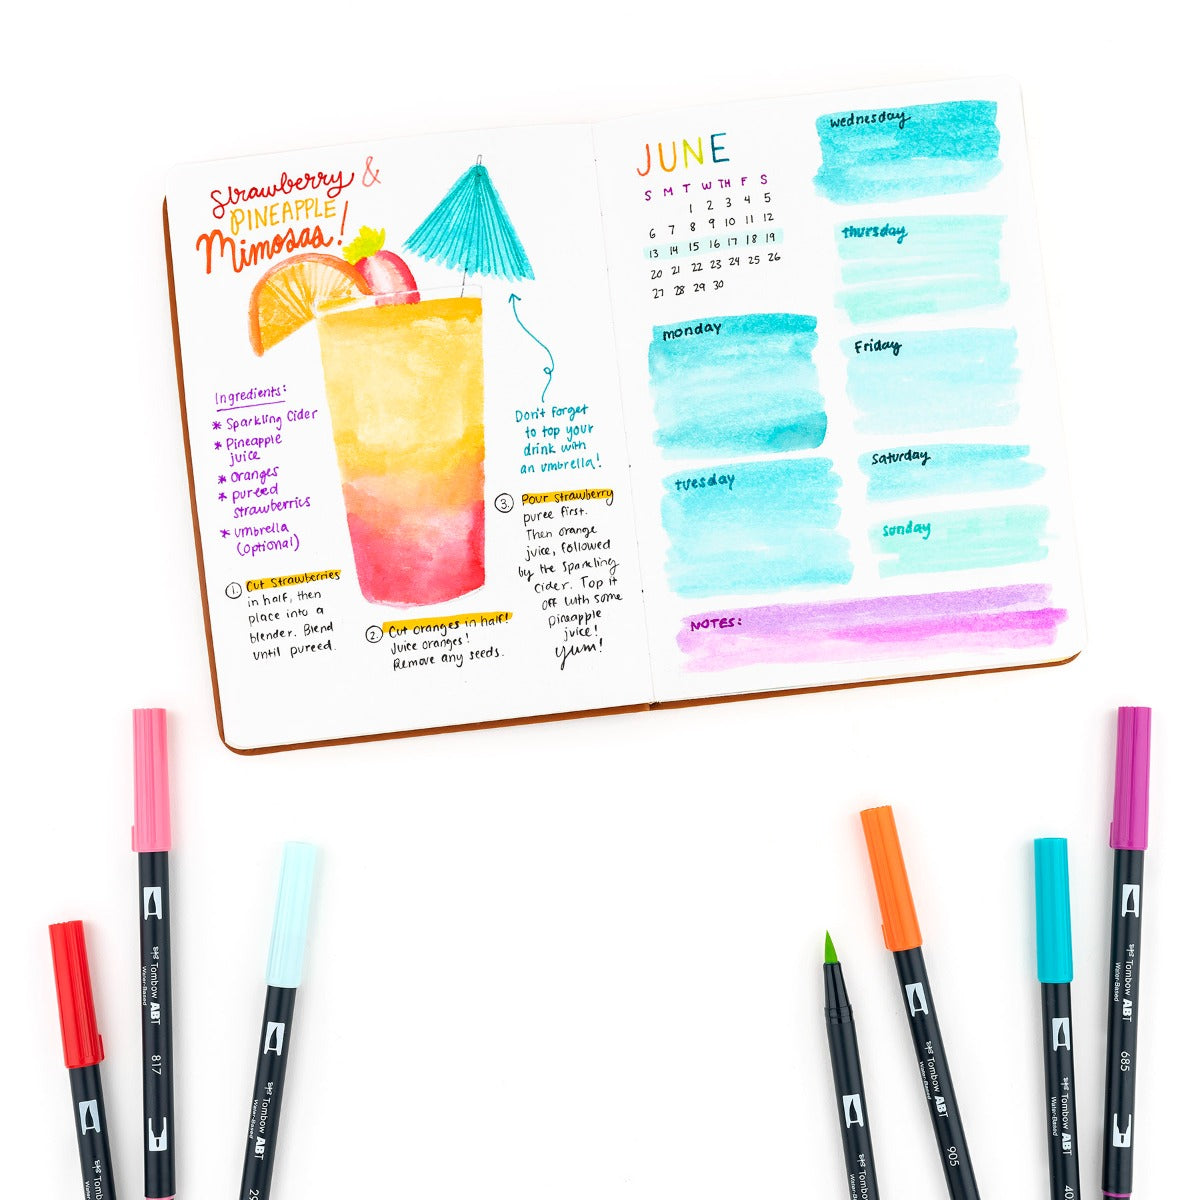 Strawberry &
PINEAPPLE
Mimosas!
Ingredients:
* Sparkling Cider
* Pineapple
juice
* oranges
* pureed
strawberries
* umbrella
(optional)
Don't forget
to top your
drink with
an umbrella!
1. Cut Strawberries
in half, then
place into a
blender. Blend
until pureed.
2. Cut oranges in half!
Juice oranges!
Remove any seeds.
3. Pour strawberry
puree first.
Then orange
juice, followed
by the Sparkling
Cider. Top it
off with some
Pineapple
juice!
Yum!
JUNE
S M T W TH F S
1 2 3 4 5
6 7 8 9 10 11 12
13 14 15 16 17 18 19
20 21 22 23 24 25 26
27 28 29 30
monday
tuesday
wednesday
thursday
Friday
saturday
sunday
NOTES:
Tombow ABT
Water-Based
817
Tombow ABT
Water-Based
Tombow ABT
Water-Based
905
Tombow ABT
Water-Based
Tombow ABT
Water-Based
685